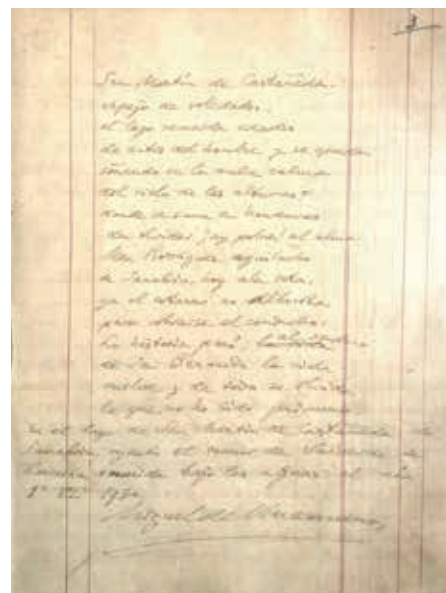 San Martín de Castañeda,
espejo de soledades,
el lago edades
de antes del hombre y se queda
soñando en la calma
del cielo de las alturas
donde se sume en honduras
¡ay pobre! el alma
Men Rodríguez aguilucho
de Sanabria, hoy ala rota,
ya el cotarro no alborota
para cobrarse el conducho.
La historia pasó
de San Bernardo la vida
vuelve y de todo se olvida
lo que no ha sido primero
En el lago de San Martín de Castañeda de
Sanabria, oyendo el rumor de Valverde de
Lucerna bajo las aguas el día
1º 1930
Miguel de Unamuno